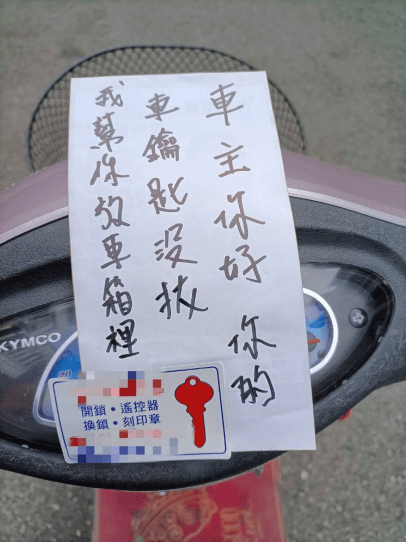 車主你好 你的
車鑰匙沒拔
我幫你放車箱裡
KYMCO
開鎖・遙控器
換鎖・刻印章